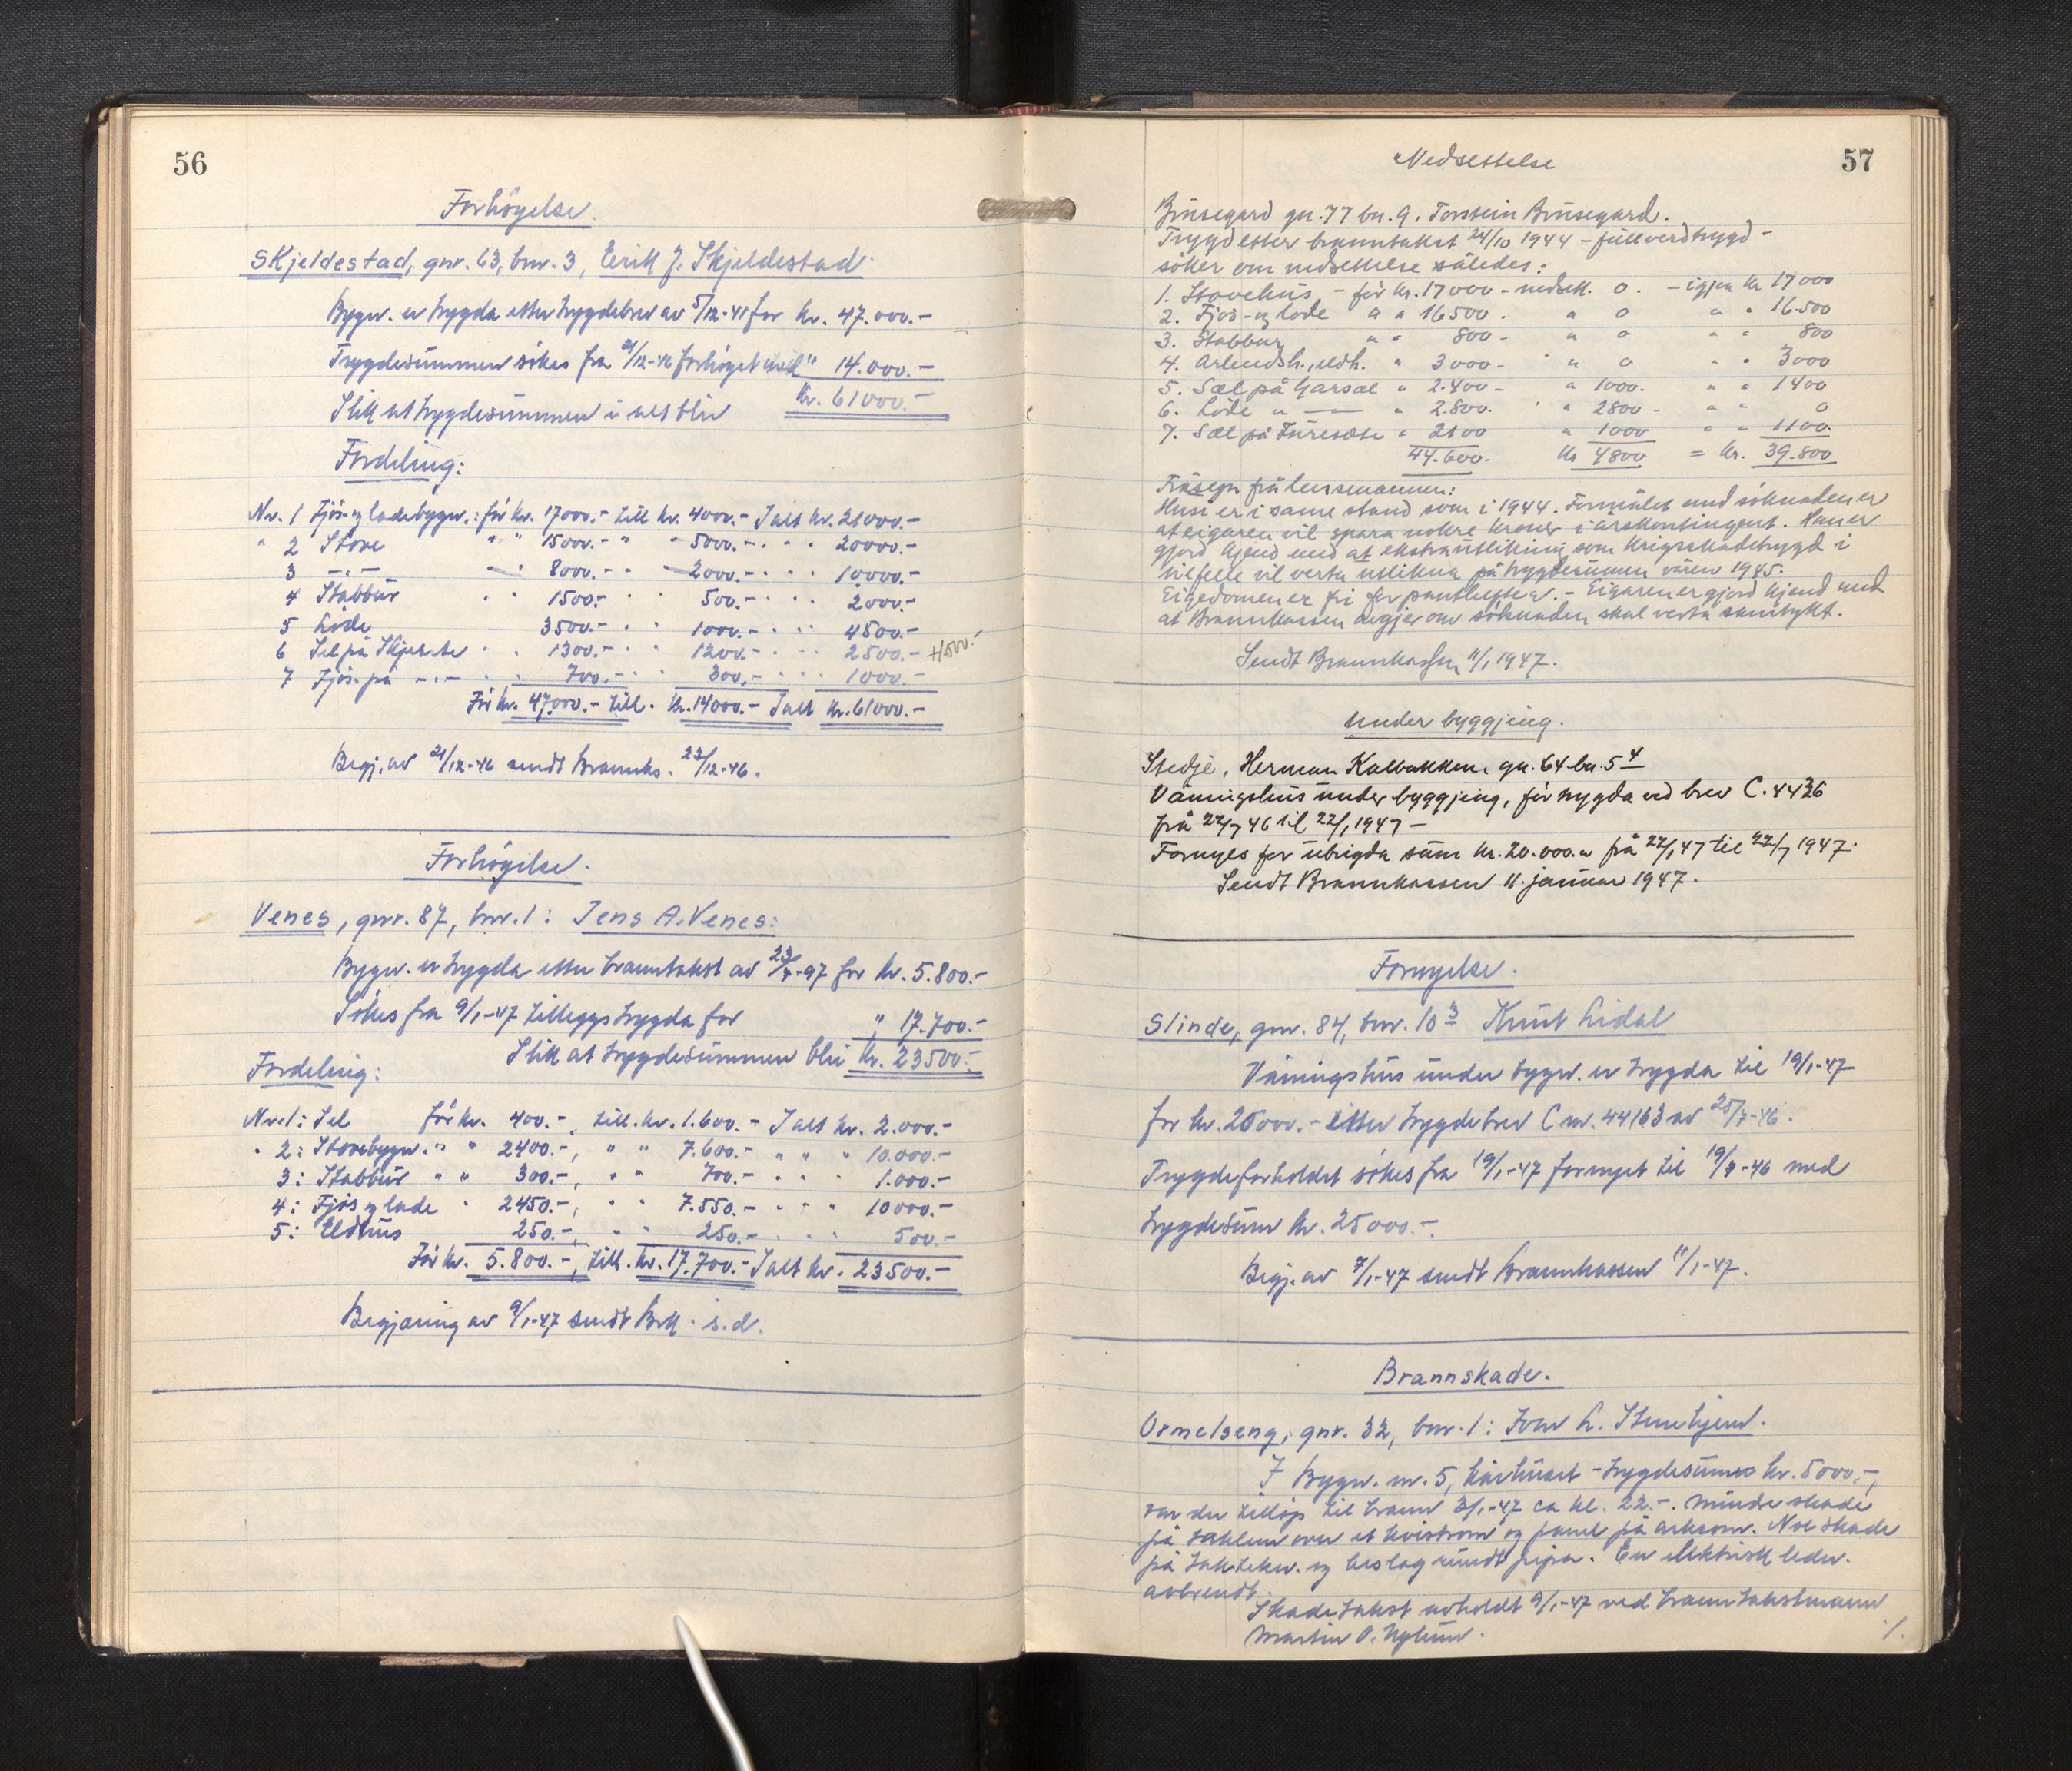 56
Forhöyelse.
Skjeldestad, gnr. 63, bnr. 3, Erik J. Skjeldestad.
Bygn. er trygda etter trygdebrev av 5/12-41 for kr. 47.000.-
Trygdesummen sökes fra 21/12-46 forhöyet med " 14.000.-
Slik at trygdesummen i alt blir Kr. 61000.-
Fordeling:
Nr. 1 Fjös- og ladebygn.: för kr. 17000.- till kr. 4000.- I alt kr. 21000.-
" 2 Stove " " 15000.- " " 5000.- " " " 20000.-
3 -"- " 8000.- " " 2000.- " " " 10000.-
4 Stabbur " " 1500.- " " 500.- " " " 2000.-
5 Löde 3500.- " " 1000.- " " " 4500.-
6 Sel på Skjersete " " 1300.- " " 1200.- " " " 2500.-
7 Fjös på -"- " " 700.- " " 300.- " " " 1000.-
För kr. 47000.- till. kr. 14000.- I alt kr. 61000.-
Begj. av 21/12-46 sendt brannks. 23/12-46.
Forhöyelse.
Venes, gnr. 87, bnr. 1: Jens A. Venes:
Bygn. er trygda etter branntakst av 23/7-97 for kr. 5.800.-
Sökes fra 9/1-47 tilleggstrygda for " 17.700.-
Slik at trygdesummen blir kr. 23500.-
Fordeling:
Nr. 1: Sel för kr. 400.-, till. kr. 1.600.- I alt kr. 2.000.-
" 2: Stovebygn. " " 2400.-, " " 7.600.- " " " 10.000.-
3: Stabbur " " 300.-, " " 700.- " " " 1.000.-
4: Fjös og lade " 2450.-, " " 7.550.- " " " 10000.-
5: Eldhus 250.-, " " 250.- " " 500.-
För kr. 5.800.-, till. kr. 17.700.- I alt kr. 23500.-
Begjæring av 9/1-47 sendt Brk. s.d.
57
Nedsettelse
Brusegard gn. 77 bn. 9. Torstein Brusegard.
Trygd etter branntakst 24/10 1944 - fullverdtrygd -
söker om nedsettelse således:
1. Stovehus - för kr. 17000 - nedsett. 0. - igjen kr 17000
2. Fjös- og löde " " 16500. " 0 " " 16.500
3. Stabbur " " 800 - " 0 " " 800
4. Arbeidsh., eldh. " 3000 - " " 0 " " 3000
5. Sæl på Garsæl " 2.400 - " 1000. " " 1400
6. Löde " -- " 2.800. " " 2800 - " " 0
7. Sæl på Furesæte " 2100 " 1000 " " 1100.
44.600. Kr 4800 = kr. 39.800
Fråsegn frå lensmannen:
Husi er i same stand som i 1944. Formålet med söknaden er
at eigaren vil spara nokre kroner i årskontingent. Han er
gjord kjend med at ekstrautlikning som krigsskadetrygd i
tilfelle vil verta utlikna på trygdesummen våren 1945.
Eigedomen er fri for panthefte. - Eigaren er gjord kjend med
at Brannkassen avgjer om söknaden skal verta samtykt.
Sendt Brannkassen 11/1 1947.
Under byggjing.
Stedje, Herman Kalbakken, gn. 64 bn. 54
Våningshus under byggjing, för trygda ved brev C. 4426
frå 22/7 46 til 22/1 1947 -
Fornyes for ubrigda sum kr. 20.000.- frå 22/1 47 til 22/7 1947.
Sendt Brannkassen 11. januar 1947.
Fornyelse.
Slinde, gnr. 84, bnr. 103 Knut Lidal
Våningshus under bygn. er trygda til 19/1-47
for kr. 25000.- etter trygdebrev C nr. 44163 av 25/7-46.
Trygdeforholdet sökes fra 19/1-47 fornyet til 19/7-46 med
trygdesum kr. 25000.-
Begj. av 7/1-47 sendt brannkassen 11/1-47.
Brannskade.
Ormelseng, gnr. 32, bnr. 1: Ivar L. Stenehjem.
I bygn. nr. 5, kårhuset - trygdesum kr. 5000.-,
var der tillöp til brann 3/1-47 ca kl. 22.-. Mindre skade
på taklem over et kvistrom og panel på arkrom. Noe skade
på taktekn. og beslag rundt pipa. En elektrisk ledn.
avbrendt.
Skadetakst avholdt 9/1-47 ved branntakstmann
Martin O. Nylund.